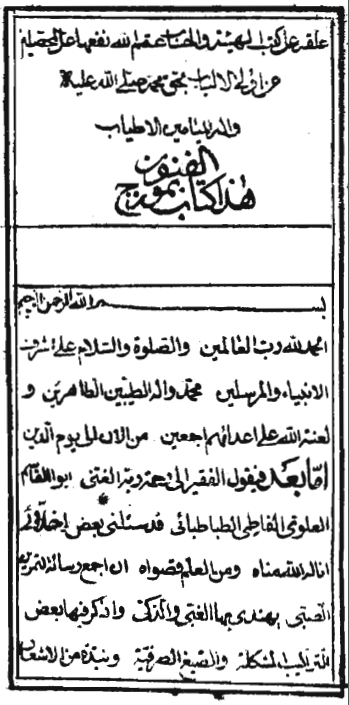 علقه على كتب الهيئة والحساب عمم الله نفعها على المحصلين
من اولى الالباب بحق محمد صلى الله عليه
واله الميامين الاطياب
هذا كتاب نموذج الفنون
بسم الله الرحمن الرحيم
الحمد لله رب العالمين والصلوة والسلام على اشرف
الانبياء والمرسلين محمد واله الطيبين الطاهرين و
لعنة الله على اعدائهم اجمعين من الان الى يوم الدين
اما بعد فيقول الفقير الى رحمة ربه الغنى ابو القاسم
العلوى الفاطمى الطباطبائى قد سئلنى بعض اخلائى
اناله الله مناه ومن العلم قصواه ان اجمع رسالة لتمرين
الصبى يهتدى بها الغبى والذكى واذكر فيها بعض
التراكيب المشكلة والصيغ الصرفية ونبذة من الاشعار